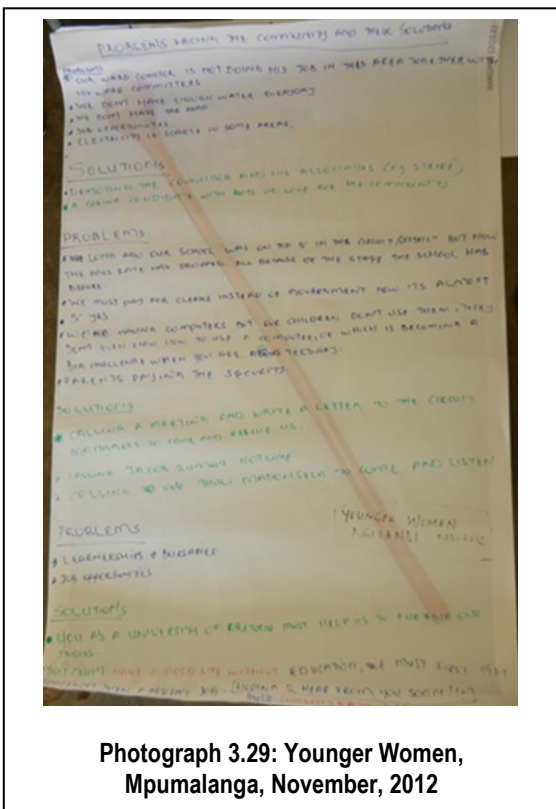 PROBLEMS FACING THE COMMUNITY AND THEIR SOLUTIONS
PROBLEMS
OUR WARD IS NOT DOING HIS JOB IN THIS AREA TOGETHER WITH
HIS WARD COMMITTEES
• WE DON'T HAVE ENOUGH WATER EVERYDAY
• WE DON'T HAVE THE ROAD
• JOB OPPORTUNITIES
• ELECTRICITY IS SCARCE IN SOME AREAS.
SOLUTIONS
• THE COUNCILLOR AND HIS ASSOCIATES (eg STRIKE)
• A CANDIDATE WITH LOVE FOR HIS COMMUNITY
PROBLEMS
• AGO OUR SCHOOL WAS ON TOP 5 IN THE CIRCUIT/DISTRICT BUT NOW
THE PASS RATE HAS DROPPED ALL BECAUSE OF THE THE SCHOOL HAS
• WE MUST PAY FOR CLERKS INSTEAD OF GOVERNMENT NOW ITS ALMOST
5 YRS
• WE'RE HAVING COMPUTERS BUT OUR CHILDREN DON'T USE THEM, THEY
DON'T EVEN KNOW HOW TO USE A COMPUTER, WHICH IS BECOMING A
BIG CHALLENGE WHEN YOU ARE TERTIARY.
• PARENTS PAYING THE SECURITY.
SOLUTIONS
• CALLING A MEETING AND WRITE A LETTER TO THE CIRCUIT
MANAGERS TO COME AND US.
• CALLING JACOB ZUMA'S HOTLINE
• CALLING THULI MADONSELA TO COME AND LISTEN
PROBLEMS
• LEARNERSHIPS & BURSARIES
• JOB OPPORTUNITIES
YOUNGER WOMEN
SOLUTIONS
• YOU AS A UNIVERSITY OF PRETORIA MUST HELP US TO FURTHER OUR
YOU CAN'T HAVE A GOOD LIFE WITHOUT EDUCATION, WE MUST FIRST GET
JOB. HEAR FROM YOU SOON
Photograph 3.29: Younger Women,
Mpumalanga, November, 2012